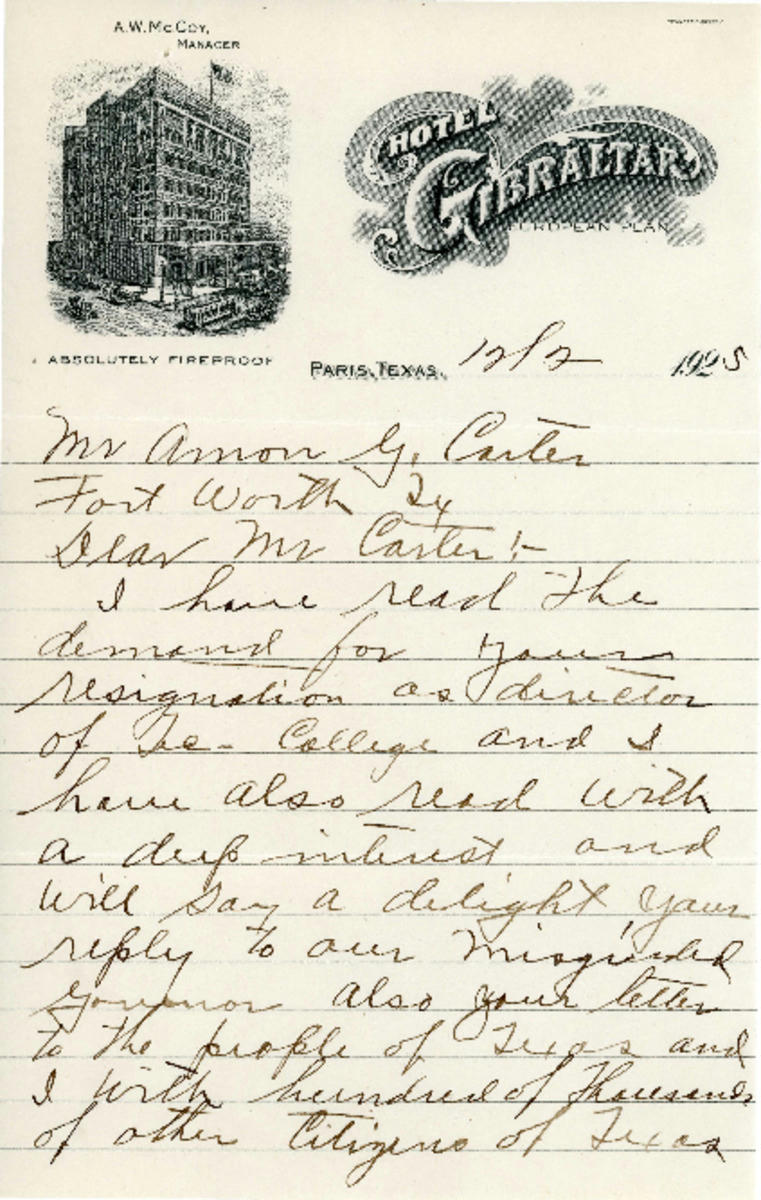 A.W. McCoy,
Manager
HOTEL
GIBRALTAR
EUROPEAN PLAN
ABSOLUTELY FIREPROOF
PARIS, TEXAS, 12/2 1925
Mr Amon G. Carter
Fort Worth Tx
Dear Mr Carter:-
I have read the
demand for your
resignation as director
of Tec- College and I
have also read with
a deep interest and
will say a delight your
reply to our misguided
Governor also your letter
to the people of Texas and
I with hundred of thousands
of other Citizens of Texas